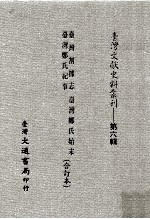 臺灣文獻史料叢刊——第六輯
臺灣割據志 臺灣鄭氏始末
臺灣鄭氏紀事
(合訂本)
臺灣大通書局印行